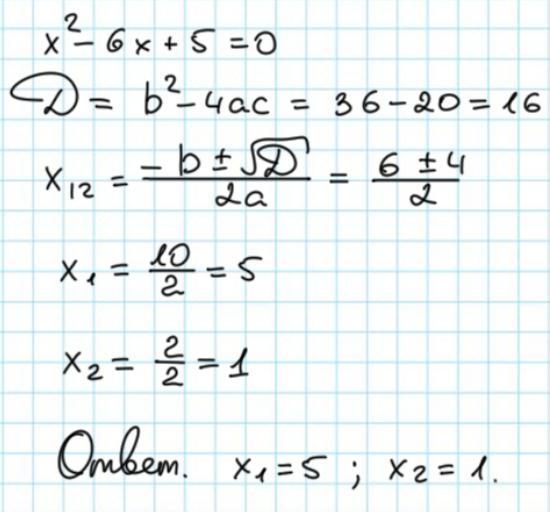 x² - 6x + 5 = 0
D = b² - 4ac = 36 - 20 = 16
x₁₂ = (-b ± √D)/(2a) = (6 ± 4)/2
x₁ = 10/2 = 5
x₂ = 2/2 = 1
Ответ. x₁ = 5 ; x₂ = 1.